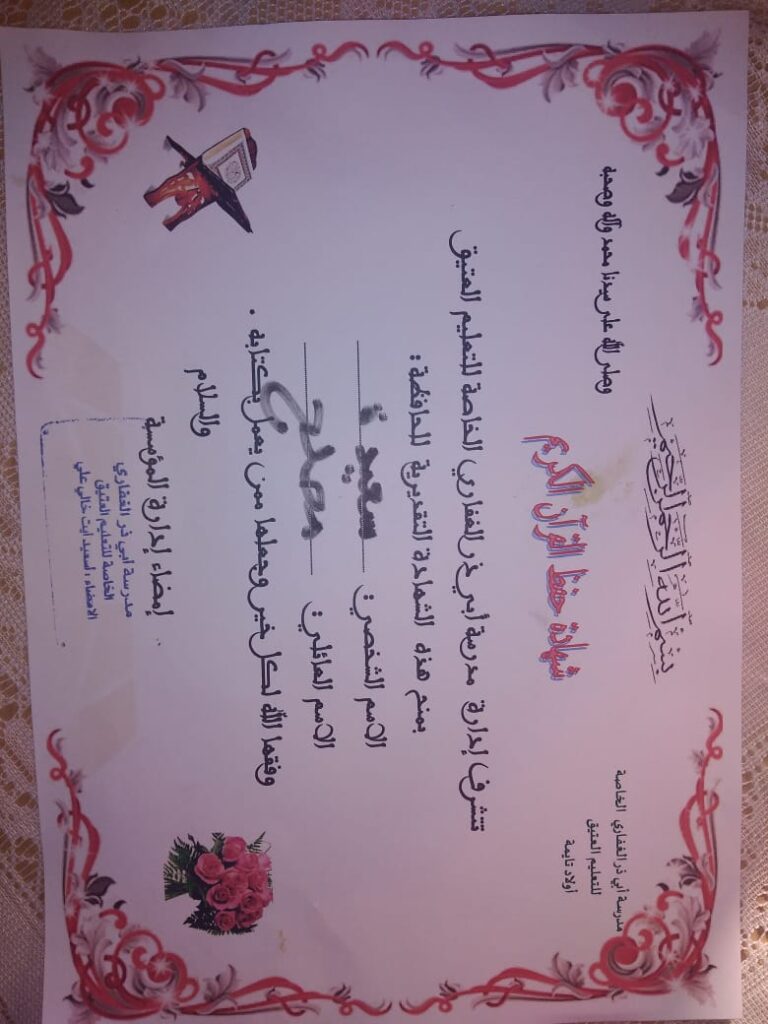 بسم الله الرحمن الرحيم
وصلى الله على سيدنا محمد وآله وصحبه
مدرسة أبي ذر الغفاري الخاصة
للتعليم العتيق
أولاد تايمة
شهادة حفظ القرآن الكريم
تتشرف إدارة مدرسة أبي ذر الغفاري الخاصة للتعليم العتيق
بمنح هذه الشهادة التقديرية للحافظة:
الاسم الشخصي: سعيدة
الاسم العائلي: مصلح
وفقها الله لكل خير وجعلها ممن يعمل بكتابه.
والسلام
إمضاء إدارة المؤسسة
مدرسة أبي ذر الغفاري
الخاصة للتعليم العتيق
الامضاء: اسعيد ايت خالي علي